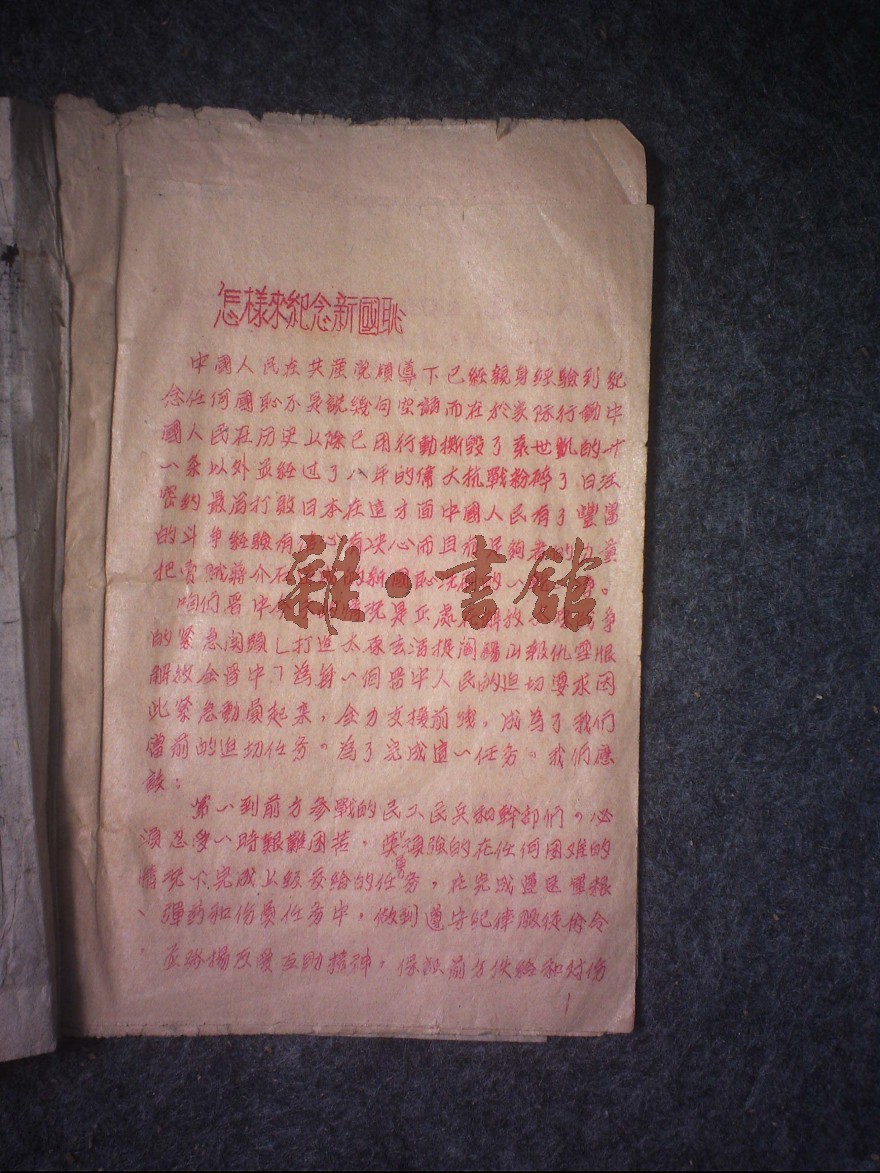 怎樣來紀念新國恥
中國人民在共產党領導下已經親身經驗到紀
念任何國恥不是説幾句空論而在於实际行動中
國人民在历史上除已用行動撕毀了袁世凱的廿
一条以外並經过了八年的偉大抗戰粉碎了日汪
密約最后打敗日本在這方面中國人民有了豐富
的斗争經験有信心有决心而且有足夠者的力量
把賣賊蔣介石 的新國恥洗 的一
咱們晋中 情况是正處 解放 争
的緊急関頭﹂打進太原去活捉阎錫山报仇雪恨
解放全晋中﹁為每一個晋中人民的迫切要求因
此緊急動員起來，全力支援前线，成為了我們
當前的迫切任务。為了完成這一任务。我們應
該：
第一到前方参戰的民工民兵和幹部們。必
須忍受一時艱難困苦，英勇頑强的在任何困难的
情况下完成上級交給的任务，在完成運送軍粮
、弹药和伤員任务中，做到遵守纪律服從命令
、並發揚友愛互助精神，保証前方供給和对伤
1
雜·書館